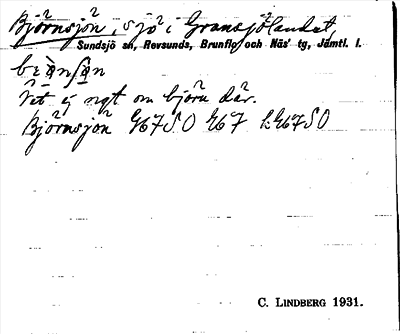 Björnsjön, sjö i Gransjölandet,
Sundsjö sn, Revsunds, Brunflo och Näs' tg, Jämtl. l.
Vet ej ngt om björn där.
Björnsjön
C. LINDBERG 1931.